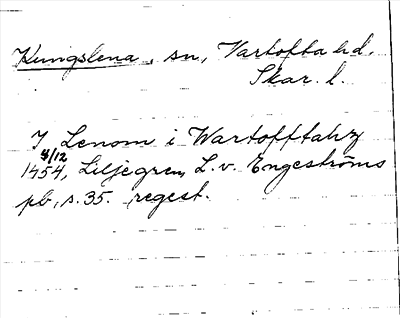 Kungslena, sn, Vartofta hd.
Skar. l.
I Lenom i Wartofftahz
4/12
1454, Liljegren, L. v. Engeströms
pb, s. 35. regest.